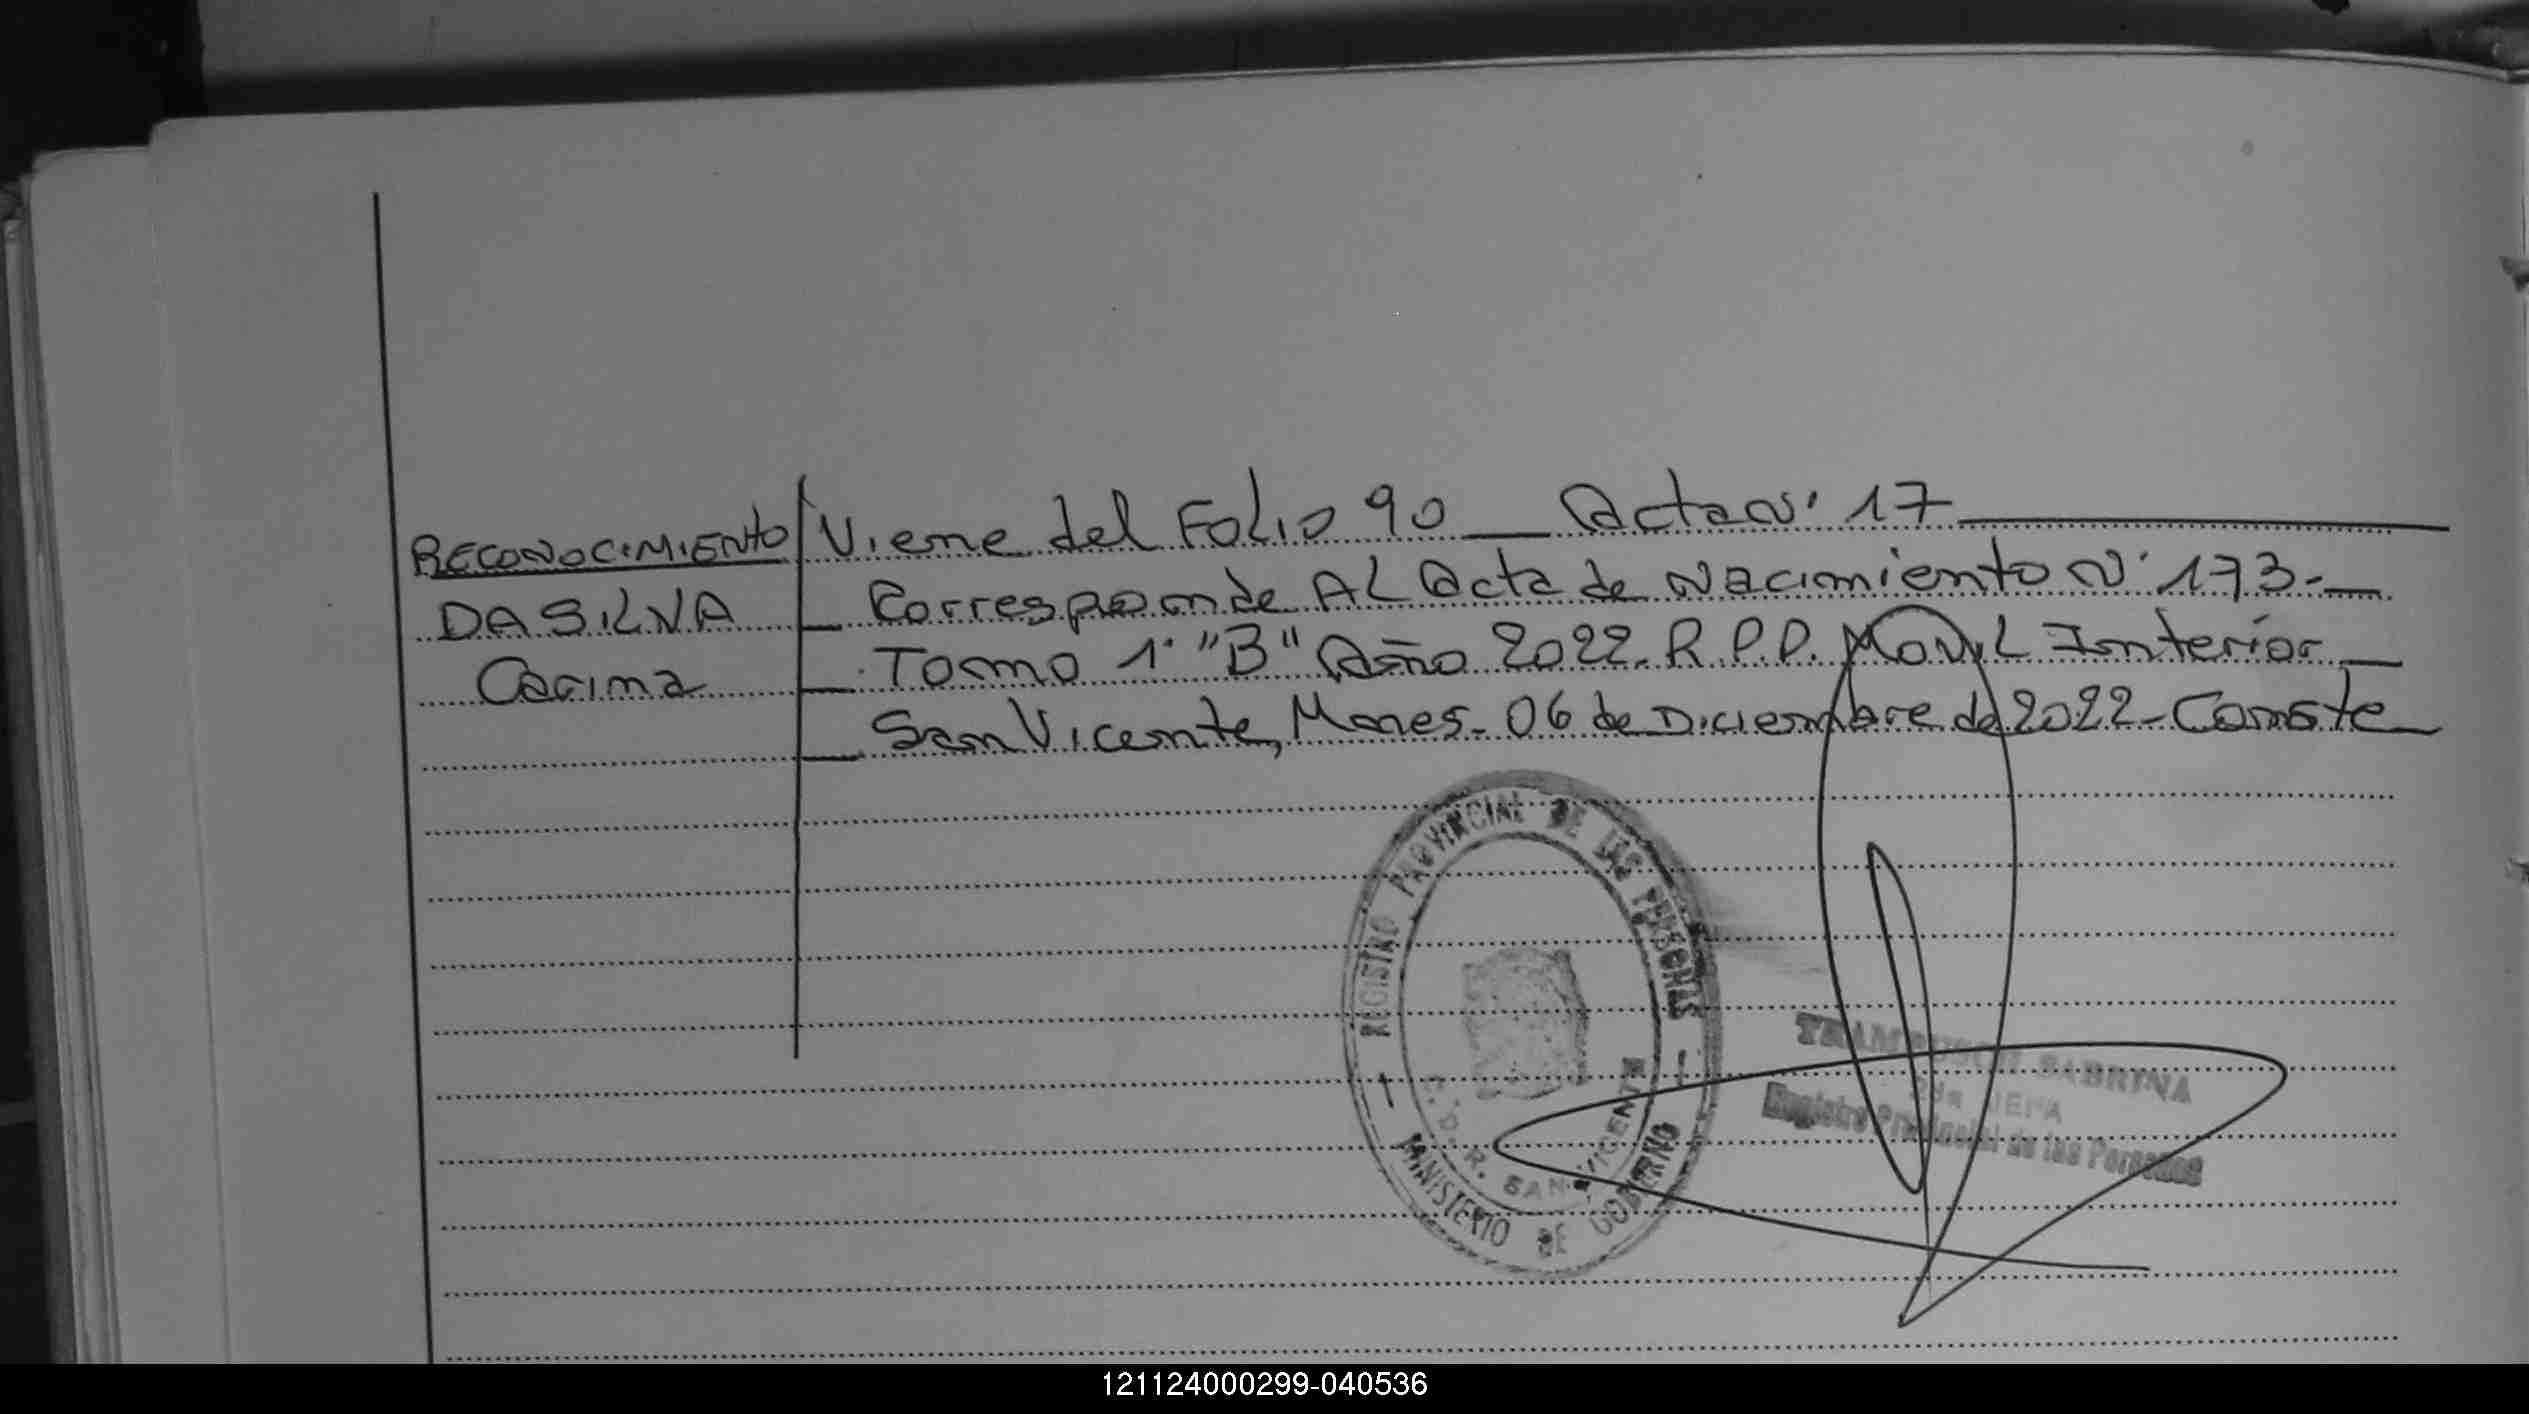 RECONOCIMIENTO Viene del Folio 90 — Acta N° 17
DA SILVA — Corresponde AL Acta de Nacimiento N° 173.-
Carina — Tomo 1° "B" Año 2022. R.P.P. Movil Interior —
— San Vicente, Mnes. 06 de Diciembre de 2022 - Conste
REGISTRO PROVINCIAL DE LAS PERSONAS
C.D.R. SAN VICENTE
MINISTERIO DE GOBIERNO
SABRINA
Registro Provincial de las Personas
121124000299-040536